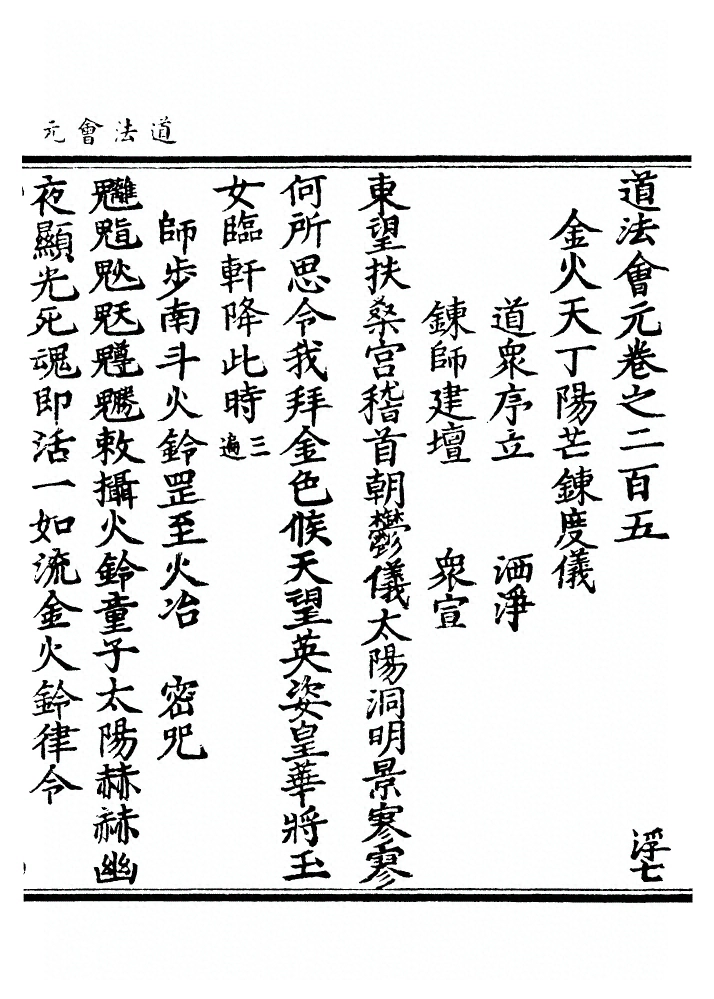 道法會元
道法會元卷之二百五　浮七
金火天丁陽芒鍊度儀
道衆序立　洒淨
鍊師建壇　衆宣
東望扶桑宮稽首朝鬱儀太陽洞明景寥寥
何所思令我拜金色候天望英姿皇華將玉
女臨軒降此時三遍
師步南斗火鈴罡至火冶　密咒
敕攝火鈴童子太陽赫赫幽
夜顯光死魂即活一如流金火鈴律令